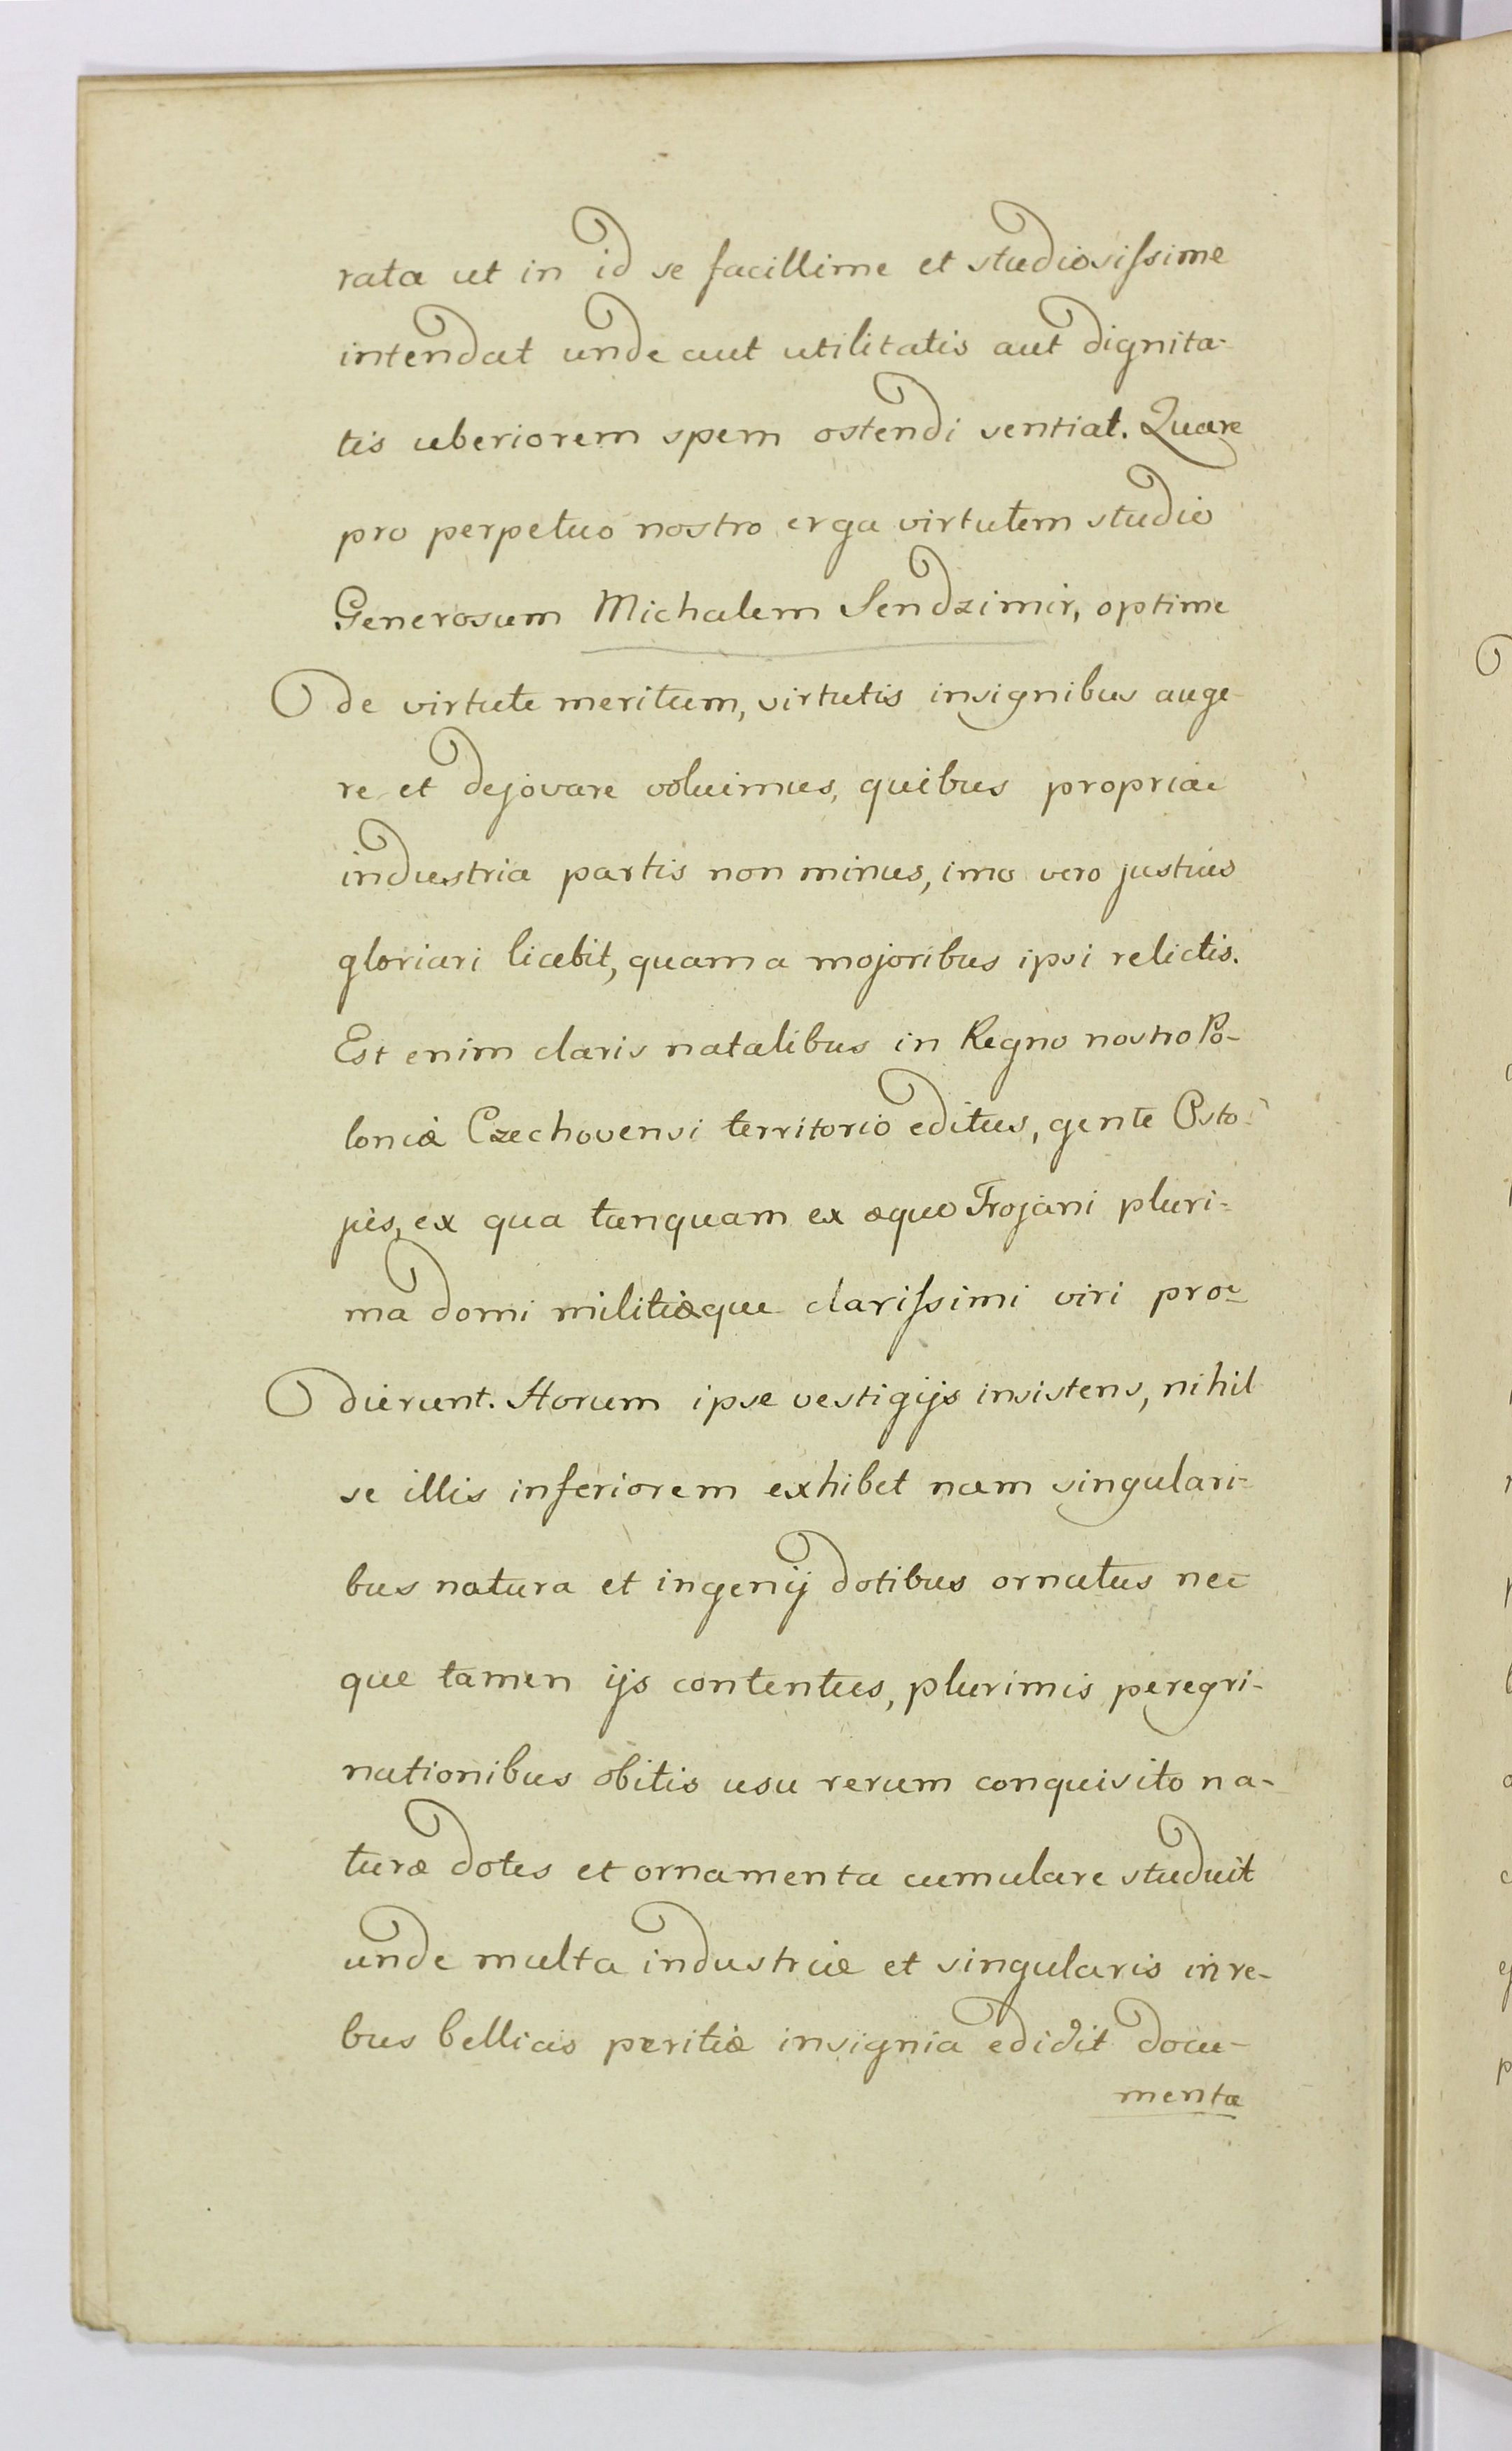 rata ut in id se facillime et studiosiſsime
intendat unde aut utilitatis aut dignita-
tis uberiorem spem ostendi sentiat. Quare
pro perpetuo nostro erga virtutem studio
Generosum Michalem Sendzimir, optime
de virtute meritum, virtutis insignibus auge-
re et dejovare voluimus, quibus propriae
industria partis non minus, imo vero justius
gloriari licebit, quam a mojoribus ipsi relictis.
Est enim claris natalibus in Regno nostro Po-
loniæ Czechovensi territorio editus, gente Osto-
jus, ex qua tanquam ex æquo Trojani pluri-
ma domi militiæque clariſsimi viri pro-
dierunt. Horum ipse vestigijs insistens, nihil
se illis inferiorem exhibet nam singulari-
bus natura et ingenij dotibus ornatus nec
que tamen ijs contentus, plurimis peregri-
nationibus obitis usu rerum conquisito na-
turæ dotes et ornamenta cumulare studuit
unde multa industriæ et singularis in re-
bus bellicis peritiæ insignia edidit docu-
menta